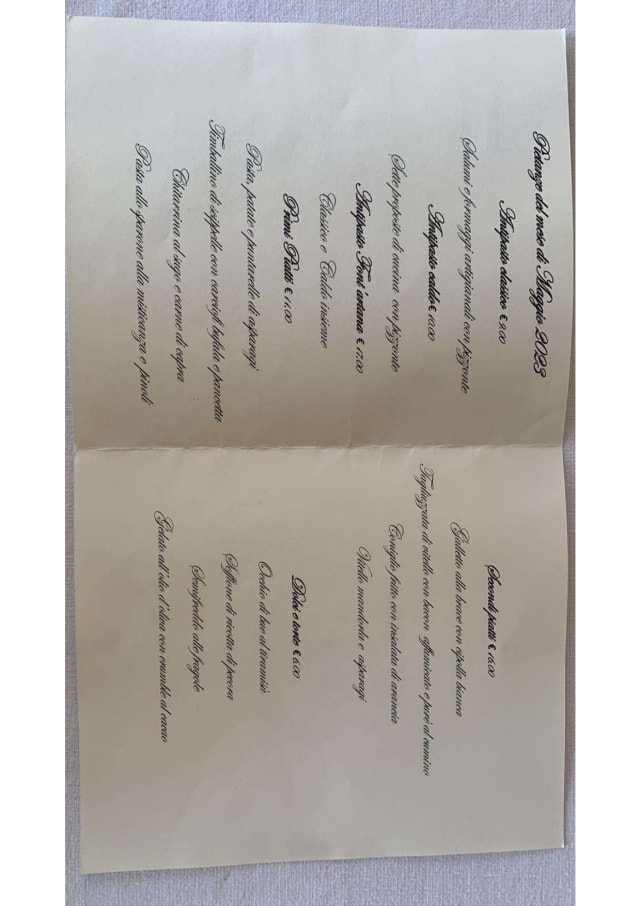 Pietanze del mese di Maggio 2023
Antipasto classico € 9.00
Salumi e formaggi artigianali con pizzonte
Antipasto caldo € 10.00
Sette proposte di cucina con pizzonte
Antipasto Font'artana € 17.00
Classico e Caldo insieme
Primi Piatti € 11.00
Pasta, patate e puntarelle di asparagi
Timballino di scrippelle con carciofi bufala e pancetta
Chitarrina al sugo e carne di capra
Pasta allo sparone alla misticanza e pinoli
Secondi piatti € 16.00
Galletto alla brace con cipolla bianca
Tagliazzata di vitello con bacon affumicato e purè al camino
Coniglio fritto con insalata di arancia
Vitello mandorla e asparagi
Dolci e torte € 6.00
Occhio di bue al tiramisù
Soffione di ricotta di pecora
Semifreddo alle fragole
Gelato all'olio d'oliva con crumble al cacao